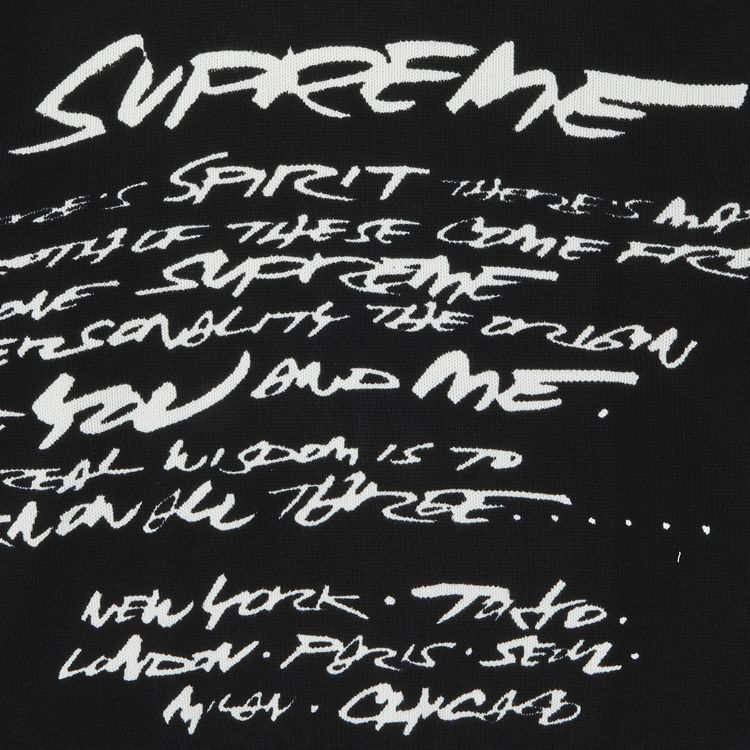 SUPREME
SPIRIT THERE'S MA
OF THESE COME FRO
ONE SUPREME
PERSONALITY THE ORIGIN
YOU AND ME.
REAL WISDOM IS TO
KNOW ALL THREE.......
NEW YORK. TOKYO.
LONDON. PARIS. SEOUL.
MILAN. CHICAGO